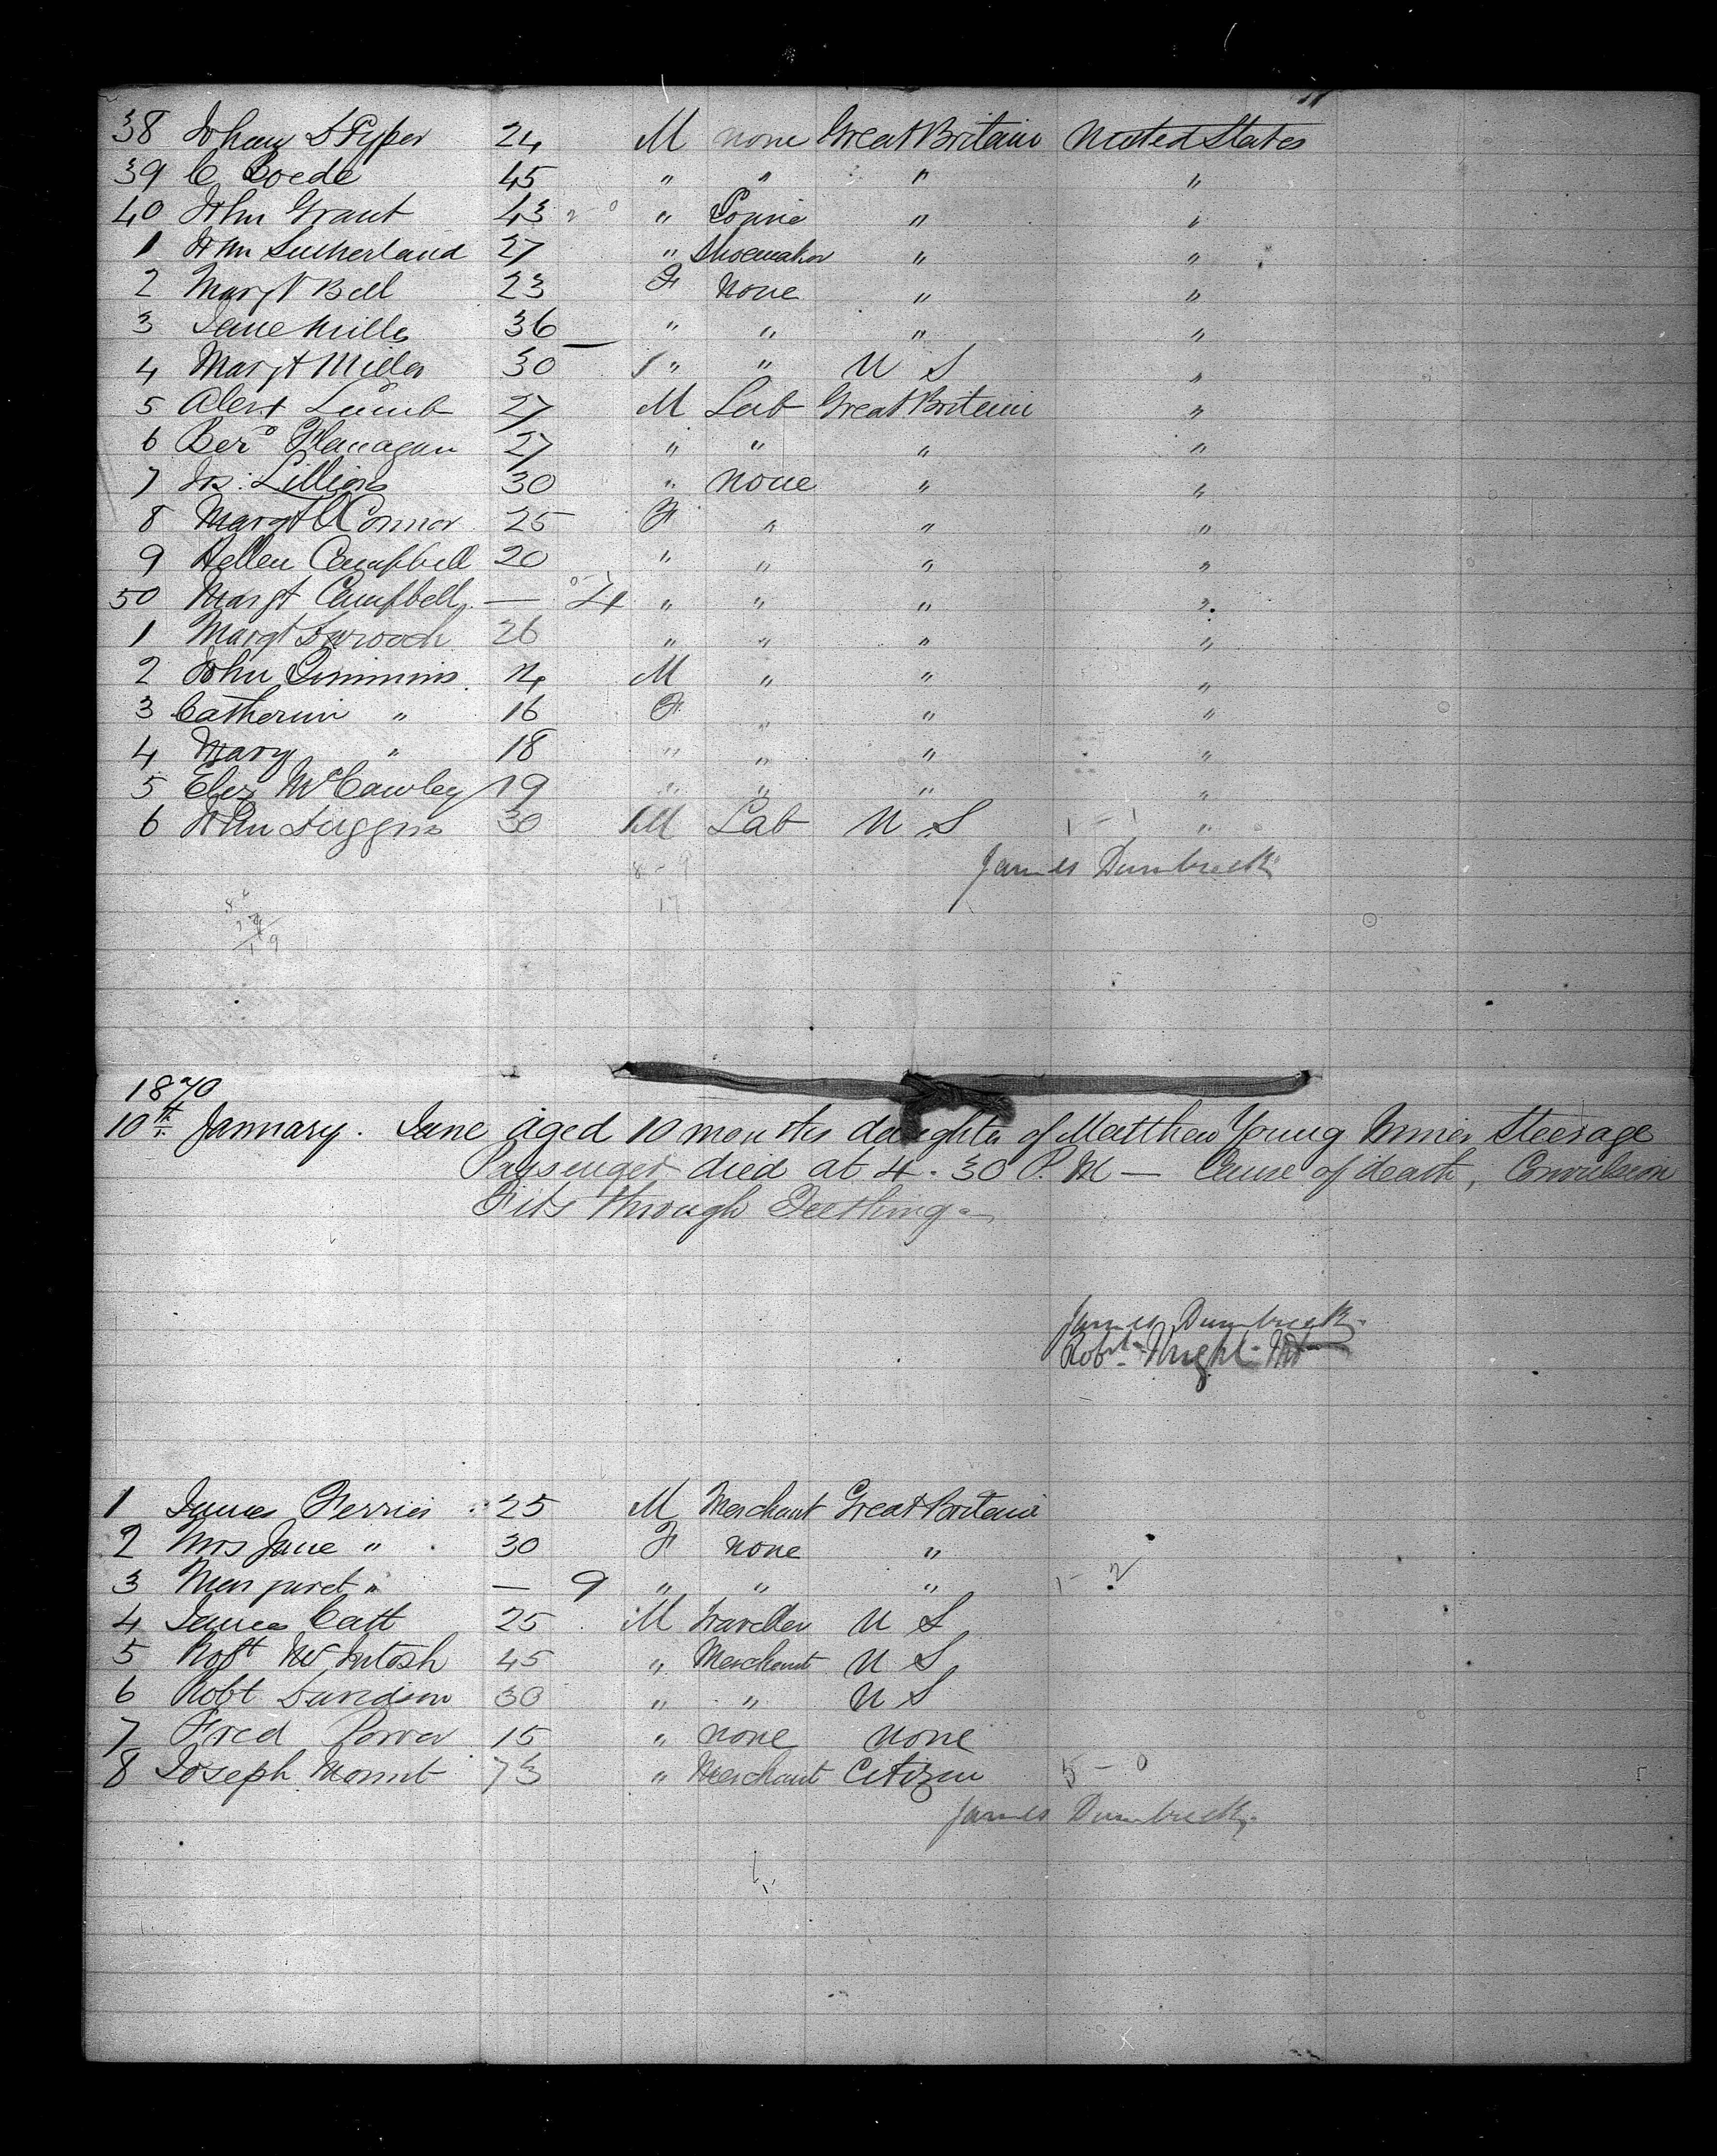 38 Johan D Pyper 24 M none Great Britain United States
39 C Boede 45 " " " "
40 John Grant 43 " " "
1 John Sutherland 27 " Shoemaker " "
2 Margt Bell 23 F None " "
3 Jane Mills 36 " " " "
4 Margt Miller 30 " " U S "
5 Alexr Lamb 27 M Lab Great Britain "
6 Berd Flanagan 27 " " " "
7 Jos: Lillions 30 " none " "
8 Margt O'Connor 25 F " " "
9 Hellen Campbell 20 " " " "
50 Margt Campbell — 4 " " " "
1 Margt 26 " " " "
2 John Simmins 14 M " " "
3 Catherine " 16 F " " "
4 Mary " 18 " " " "
5 Eliz McCawley 19 " " " "
6 John Duggins 30 M Lab U S 1 - 1 "
8 - 9
James Dumbreck
17
1870
10th January. Jane aged 10 months daughter of Matthew Young Miner Steerage
Passenger died at 4.30 P.M — Cause of death, Convulsion
Fits through Teething
James Dumbreck
Robt Wright MD
1 James Ferrier 25 M Merchant Great Britain
2 Mrs Jane " 30 F none "
3 Margaret " — 9 " " " 1 - 2
4 James Catt 25 M Traveller U S
5 Robt McIntosh 45 " Merchant U S
6 Robt Davidson 30 " " U S
7 Fred 15 " none none
8 Joseph Mount 73 " Merchant Citizen 5 - 0
James Dumbreck